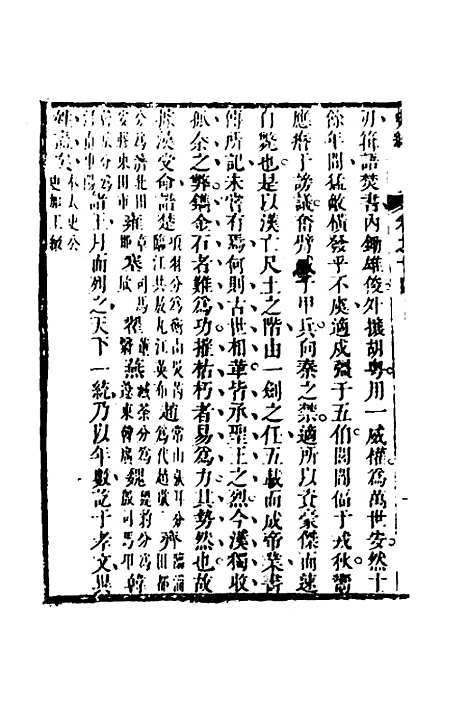 刃箝語焚書內鋤雄俊外攘胡粵用一威權為萬世安然十
餘年間猛敵橫發乎不虞適戍彊于五伯閭閻偪于戎狄嚮
應瘖于謗議奮臂威于甲兵向秦之禁適所以資豪傑而速
自斃也是以漢亡尺土之階由一劍之任五載而成帝業書
傳所記未嘗有焉何則古世相革皆承聖王之烈今漢獨收
孤秦之弊鐫金石者難為功摧枯朽者易為力其勢然也故
據漢受命譜楚項羽分為衡山吳芮臨江共敖九江英布趙常山張耳分為代趙歇齊臨淄田都
分為濟北田安膠東田市雍章邯塞司馬欣翟董翳燕臧荼分為遼東韓廣魏魏豹分為殷司馬卬韓
諸王月而列之天下一統乃以年數訖于孝文異
姓盡矣本太史公史加工緻